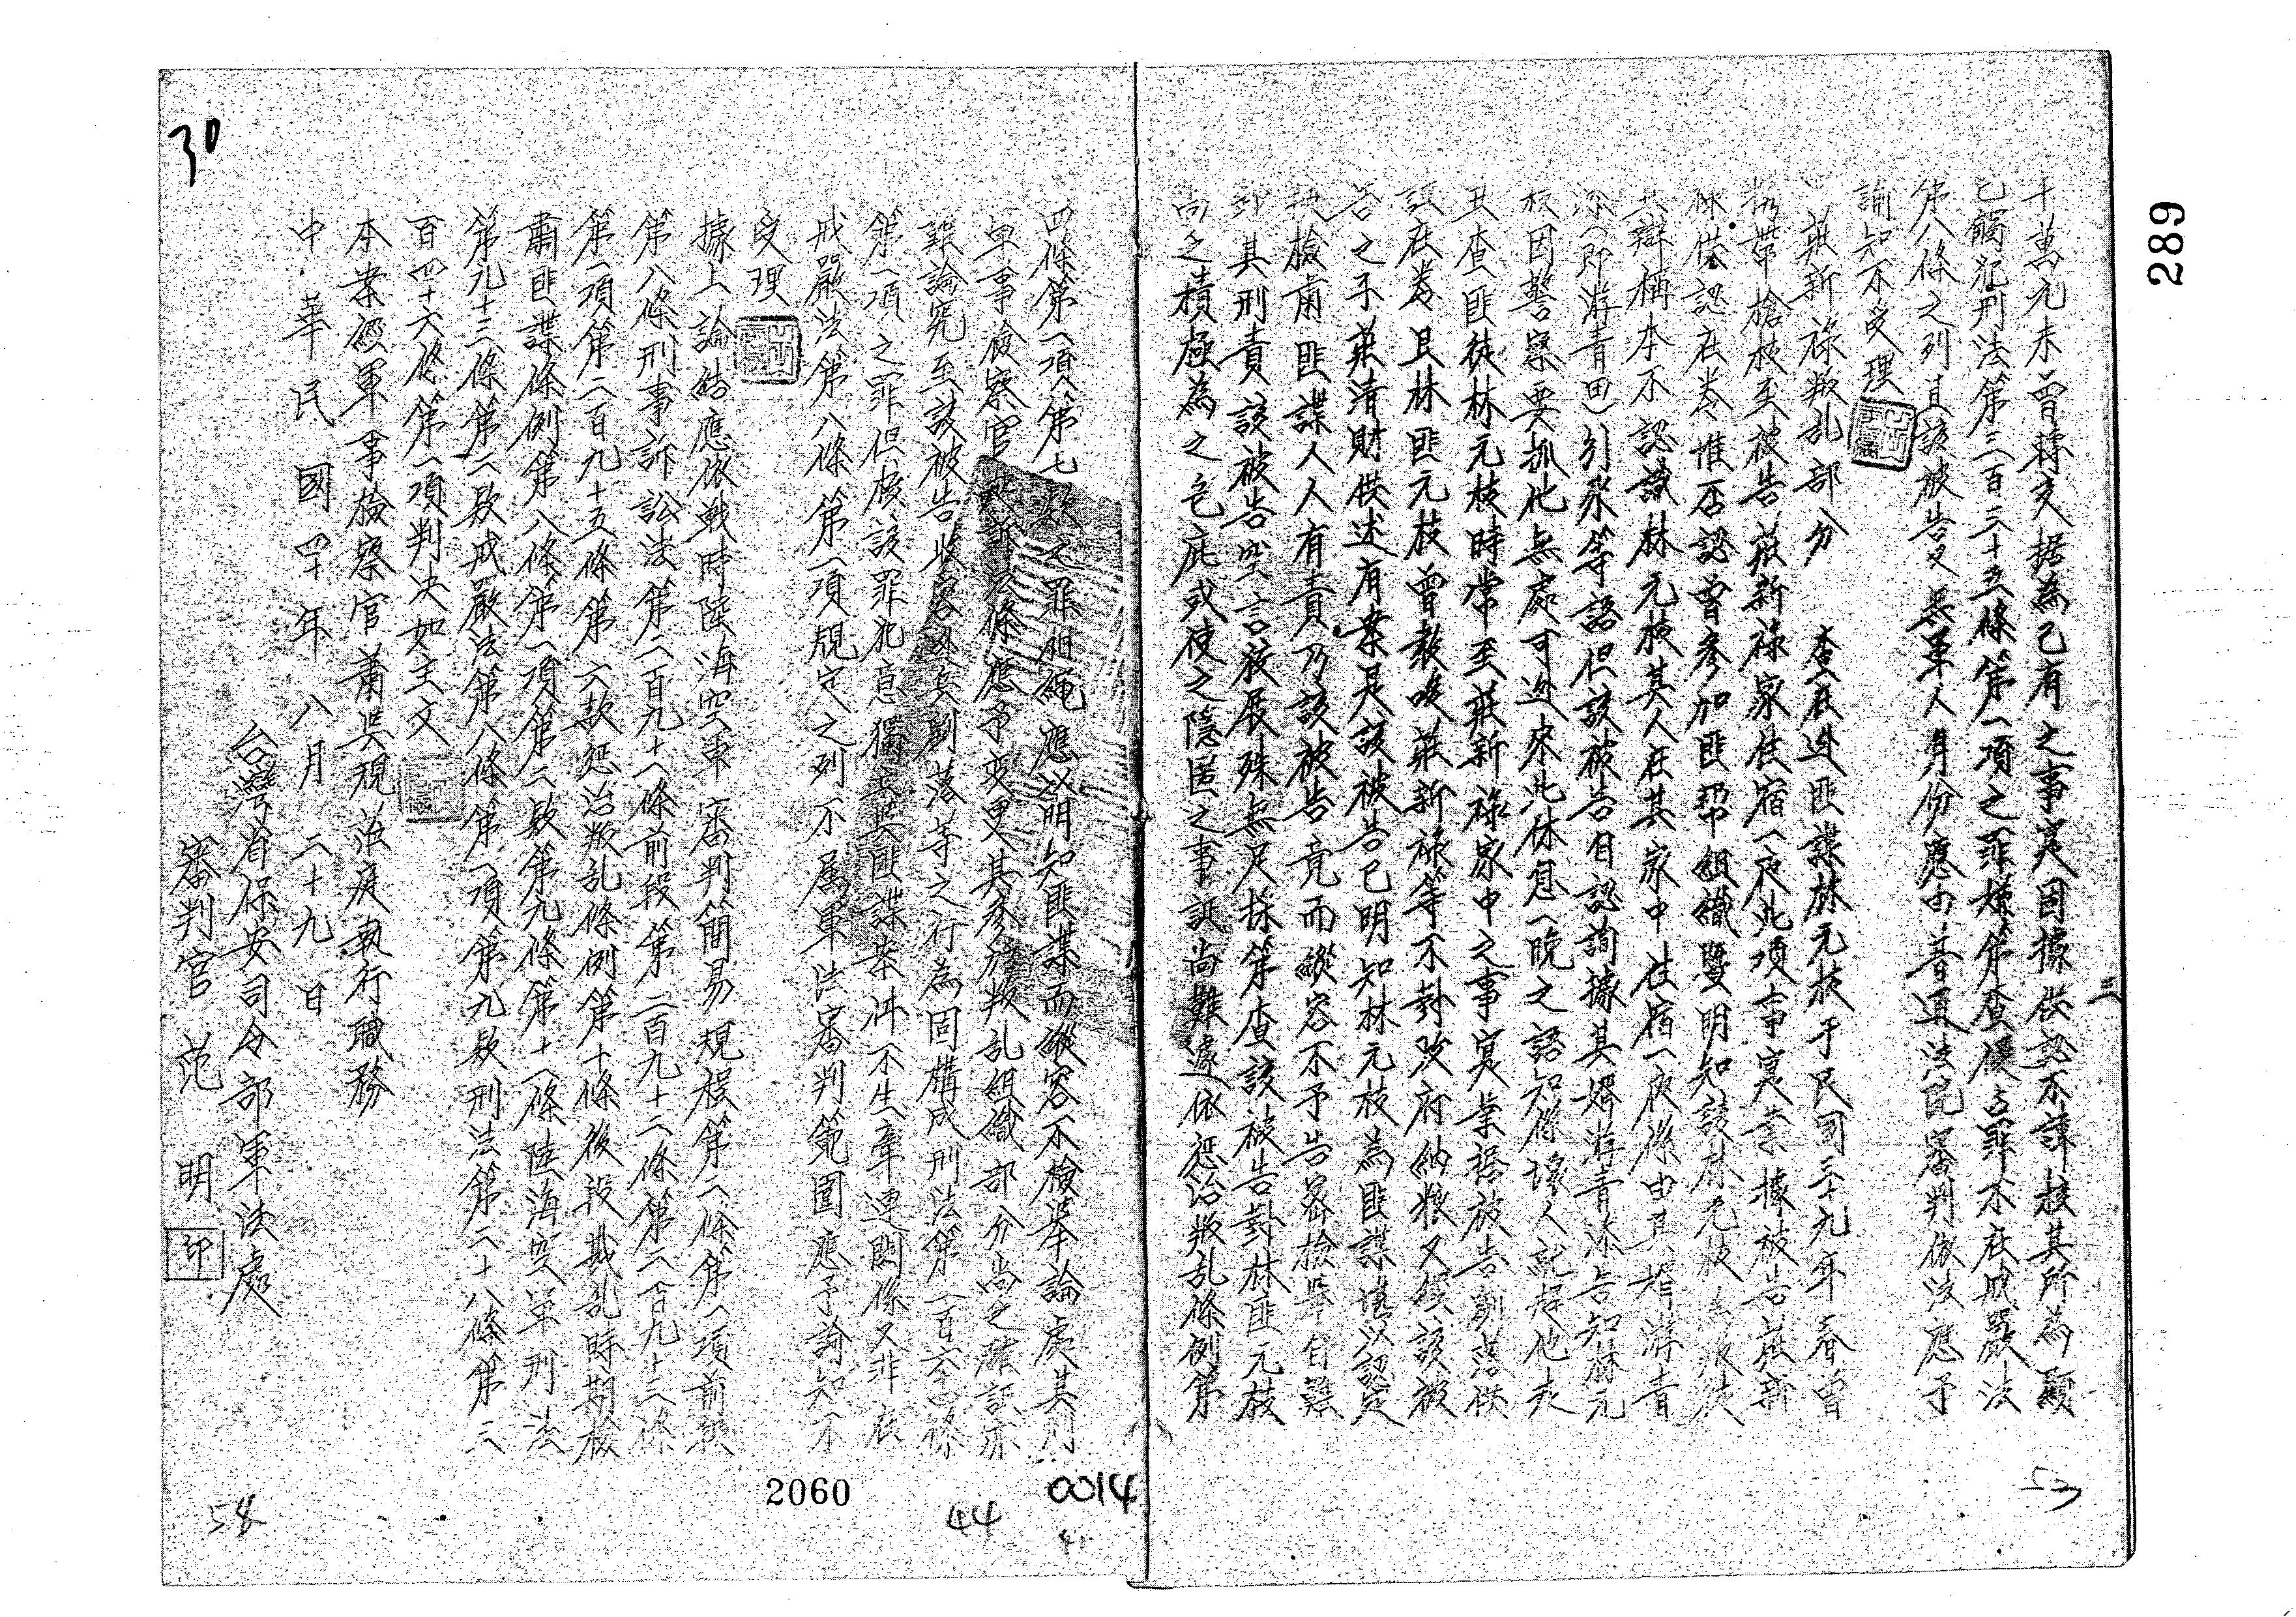 289
三
千萬元未曾轉交据為己有之事實因據供認不諱核其所為顯
已觸犯刑法第三百三十五條第一項之罪嫌第查侵占罪不在戒嚴法
第八條之列且該被告又無軍人身份應由普通法院審判依法應予
諭知不受理
莊新祿叛乱部分 查在逃匪諜林元枝于民国三十九年春曾
携帶槍枝至被告莊新祿家住宿一夜此項事實業據被告莊新
祿供認在卷惟否認曾參加匪帮組織暨明知該林元枝為叛徒
其辯稱本不認識林元枝其人在其家中住宿一夜係由其婿游青
添(即游青田)引來等語但該被告自認詢據其婿游青添告知林元
枝因警察要抓他無處可逃來此休息一晚之語知係壞人說起他來
且查匪徒林元枝時常至莊新祿家中之事實業據被告劉落供
認在卷且林匪元枝曾教唆莊新祿等不對政府納粮又經該被
告之子莊清財供述有案是該被告已明知林元枝為匪諜堪以認定
執檢肅匪諜人人有責乃該被告竟而縱容不予告密檢舉自難
卸其刑責該被告空言諉展殊無足採第查該被告對林匪元枝
尚乏積極為之包庇或使之隱匿之事証尚難遽依惩治叛乱條例第
53
四條第一項第七款之罪相繩應以明知匪諜而縱容不檢舉論處其刑
軍事檢察官起訴法條應予变更其參加叛乱組織部分尚乏確証亦
難論究至該被告收容逃兵劉落等之行為固構成刑法第一百六十四條
第一項之罪但核該罪犯意獨立與匪諜案件不生牽連関係又非在
戒嚴法第八條第一項規定之列不屬軍法審判範圍應予諭知不
受理
據上論結應依戰時陸海空軍審判簡易規程第二條第一項前段
第八條刑事訴訟法第二百九十一條前段第二百九十二條第二百九十三條
第一項第二百九十五條第六款惩治叛乱條例第十條後段戡乱時期檢
肅匪諜條例第八條第一項第二款第九條第十一條陸海空軍刑法
第九十三條第二款戒嚴法第八條第一項第九款刑法第二十八條第三
百四十六條第一項判决如主文
本案經軍事檢察官蕭與規涖庭執行職務
中華民國四十年八月二十九日
台灣省保安司令部軍法處
審判官 范明 印
30
58
2060
44
0014